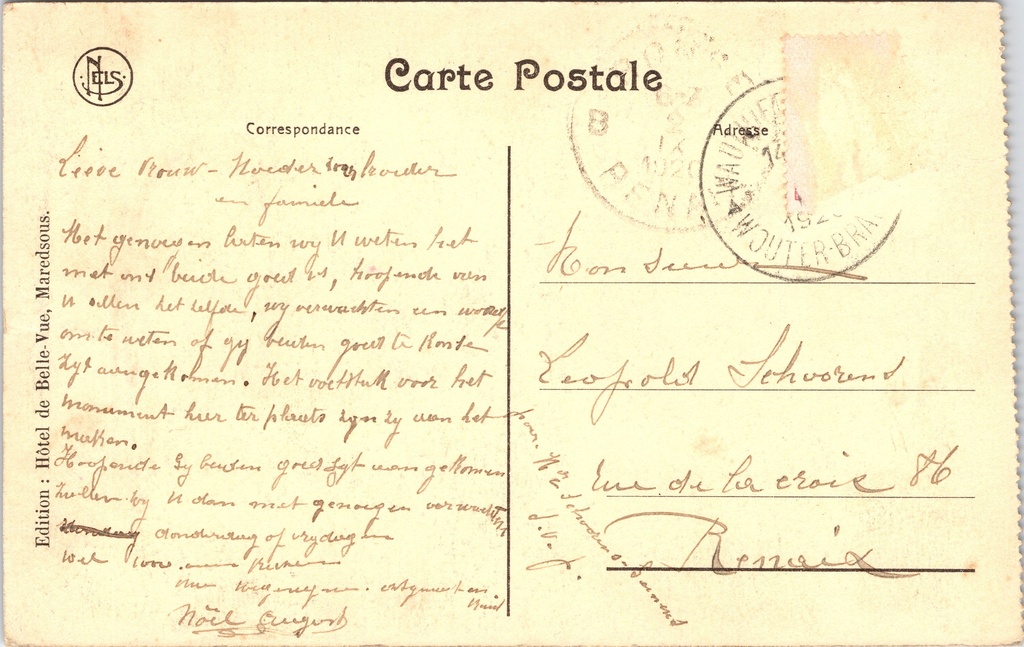 NELS
Carte Postale
Correspondance
Adresse
Edition : Hôtel de Belle-Vue, Maredsous.
B
IX
1920
WAUTHIER
14
192
WOUTER-BRA
Lieve Vrouw - Moeder broeder
en familie
Met genoegen laten wy U weten het
met ons beide goed is, hoopende van
U allen het zelfde, wy verwachten een woordje
om te weten of gy beiden goed te Ronse
zyt aangekomen. Het voetstuk voor het
monument hier ter plaats zyn zy aan het
maken.
Hoopende gy beiden goed zyt aangekomen
zullen wy U dan met genoegen verwachten
donderdag of vrydag
wel
Noël August
Monsieur
Leopold Schoorens
rue de la croix 86
Renaix
pour Mr Schoorens